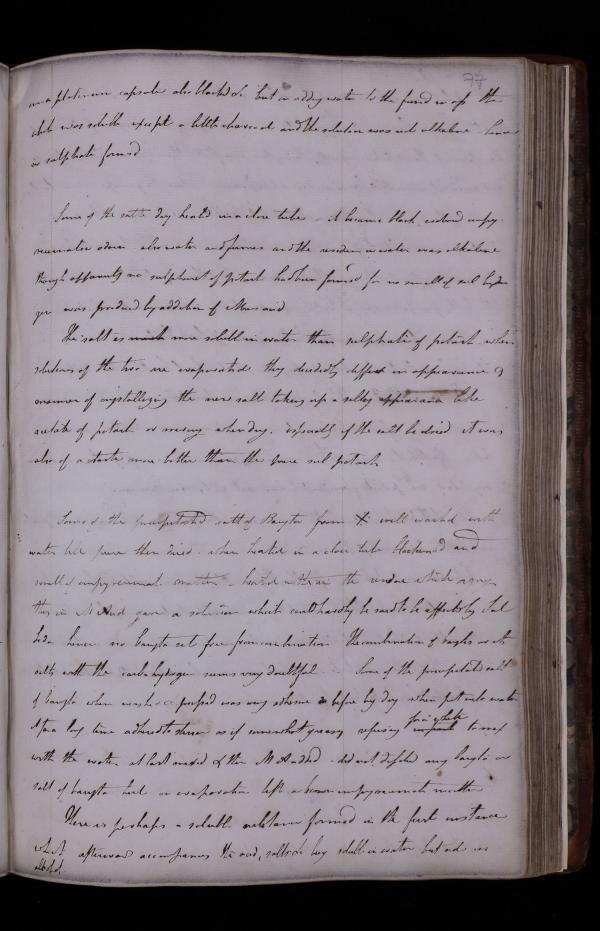 77
in a platinum capsule also blackd &c but on adding water to the fused mass the
whole was soluble except a little charcoal and the solution was not alkaline hence
a sulphate formed
Some of the salt dry heated in a close tube - it became black, evolved empy-
reumatic odour also water and fumes and the residue in water was alkaline
though apparently no sulphuret of potash had been formed for no smell of sul hydro
gen was produced by addition of Mur acid
The salt is much more soluble in water than sulphate of potash when
solutions of the two are evaporated they decidedly differ in appearance &
manner of crystallizing the new salt taking up a silky appearance like
acetate of potash or when dry. especially if the salt be dried it was
also of a taste more bitter than the pure sul potash
Some of the precipitated salt of Baryta from X well washed with
water till pure then dried - when heated in a close tube blackened and
smell of empyreumatic matter - heated in the air the residue white
this in M Acid gave a solution which could hardly be said to be affected by Sul
Soda hence no baryta set free from combination The combination of baryta with
with the carbo hydrogen seems very doubtful - Some of the precipitated salt
of baryta when washed & pressed was very adhesive before dry when put into water
for a long time adhered together as if somewhat greasy refusing for a while to mix
with the water at last mixed & then M A added - did not dissolve any baryta or
salt of baryta but on evaporation left a brown empyreumatic matter
There is perhaps a soluble substance formed in the first instance
which afterward accompanies the acid, salts &c being soluble in water but not in
alcohol